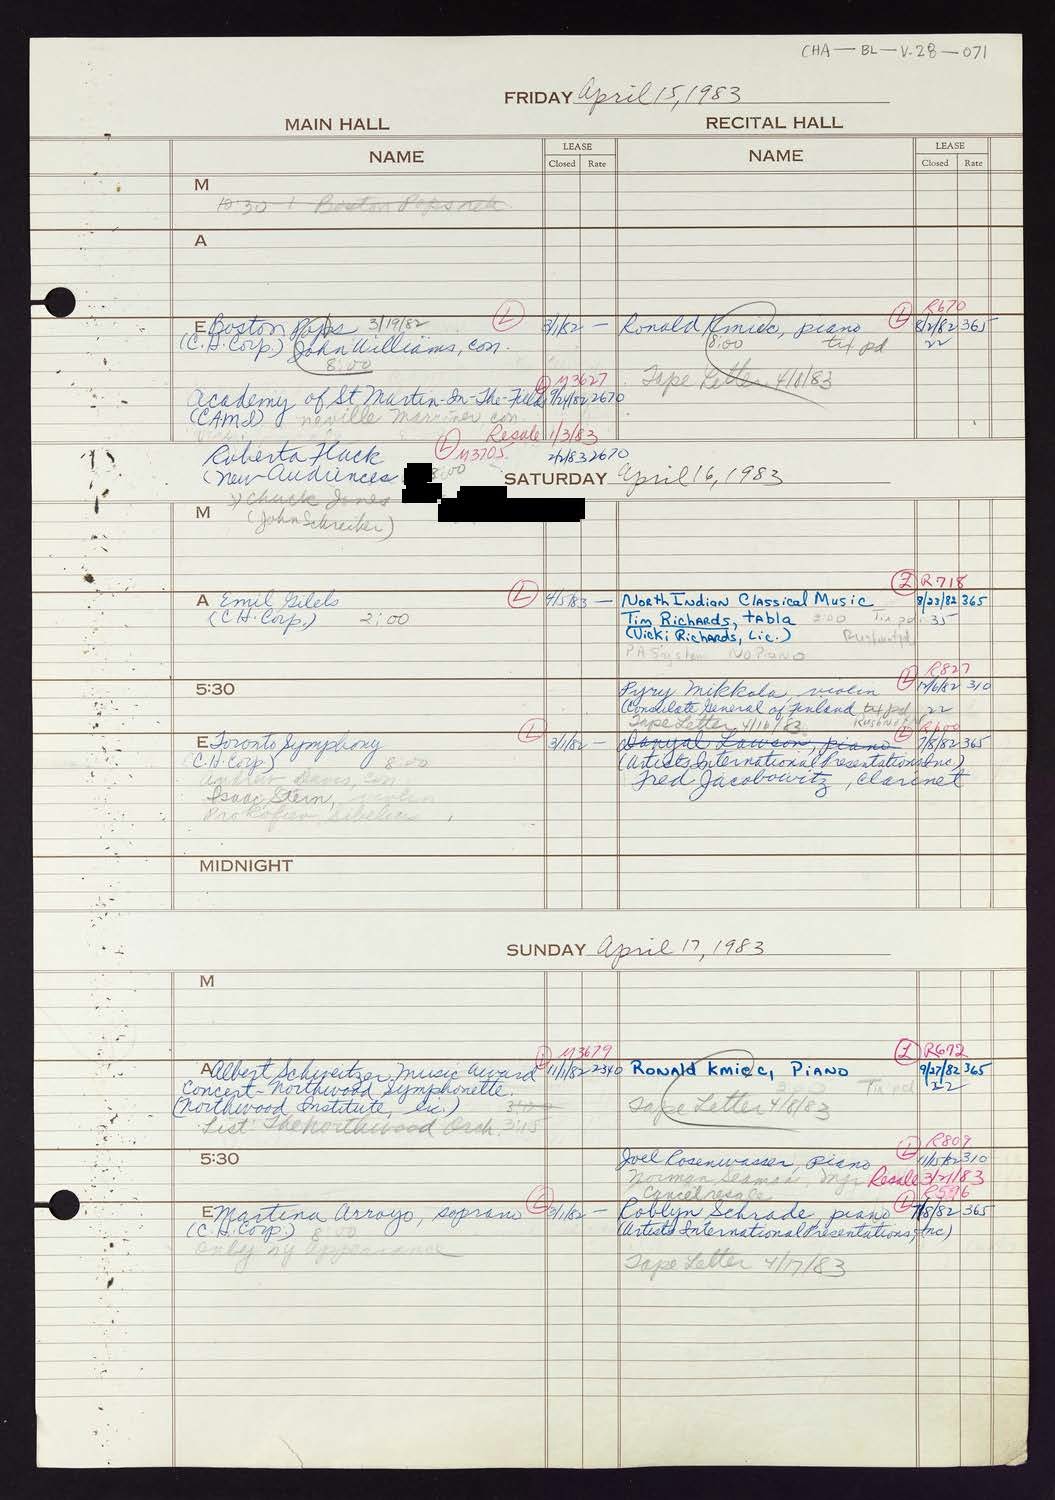 CHA — BL — V.28 — 071
FRIDAY April 15, 1983
MAIN HALL
RECITAL HALL
NAME
LEASE
Closed Rate
NAME
LEASE
Closed Rate
M
10:30 - 1 Boston Pops reh
A
E Boston Pops 3/19/82 L 3/1/82 —
(C.H. Corp) John Williams, con.
8:00
Academy of St Martin-In-The-Fields L M3627 9/24/82 2670
(CAMI) neville marriner con.
Resale 1/3/83
Roberta Flack L M3705 2/2/83 2670
(New Audiences 8:00
Ronald Kmiec, piano L R670 8/2/82 365
8:00 tix pd 22
Tape Letter 4/8/83
SATURDAY April 16, 1983
Chuck Jones
M
(John Schreiber)
A Emil Gilels L 4/5/83 —
(C.H. Corp.) 2:00
L R718
North Indian Classical Music 8/23/82 365
Tim Richards, tabla 2:00 Tix pd 35
(Vicki Richards, Lic.)
PA System No Piano
5:30
L R827
Pyry Mikkola violin 12/6/82 310
Consulate General of Finland tix pd 22
Tape Letter 4/16/83
E Toronto Symphony L 3/1/82 —
(C.H. Corp) 8:00
Andrew Davis, con.
Isaac Stern, violin
Prokofiev, Sibelius
L R600
Danyal Lawson, piano 7/8/82 365
(Artists International Presentations, Inc)
Fred Jacobowitz, clarinet
MIDNIGHT
SUNDAY April 17, 1983
M
A Albert Schweitzer Music Award L M3679 11/1/82 2340
Concert - Northwood Symphonette
(Northwood Institute, Lic.) 3:00
List: The Northwood Orch. 3:15
L R692
Ronald Kmiec, Piano 9/27/82 365
3:00 Tix pd 22
Tape Letter 4/8/83
5:30
L R809
Joel Rosenwasser, piano 11/15/82 310
Norman Seaman, Mgr. Resale 3/21/83
Cancel resale
E Martina Arroyo, soprano L 3/1/82 —
(C.H. Corp.) 8:00
only ny appearance
L R596
Roblyn Schrade, piano 7/8/82 365
(Artists International Presentations, Inc)
Tape Letter 4/17/83